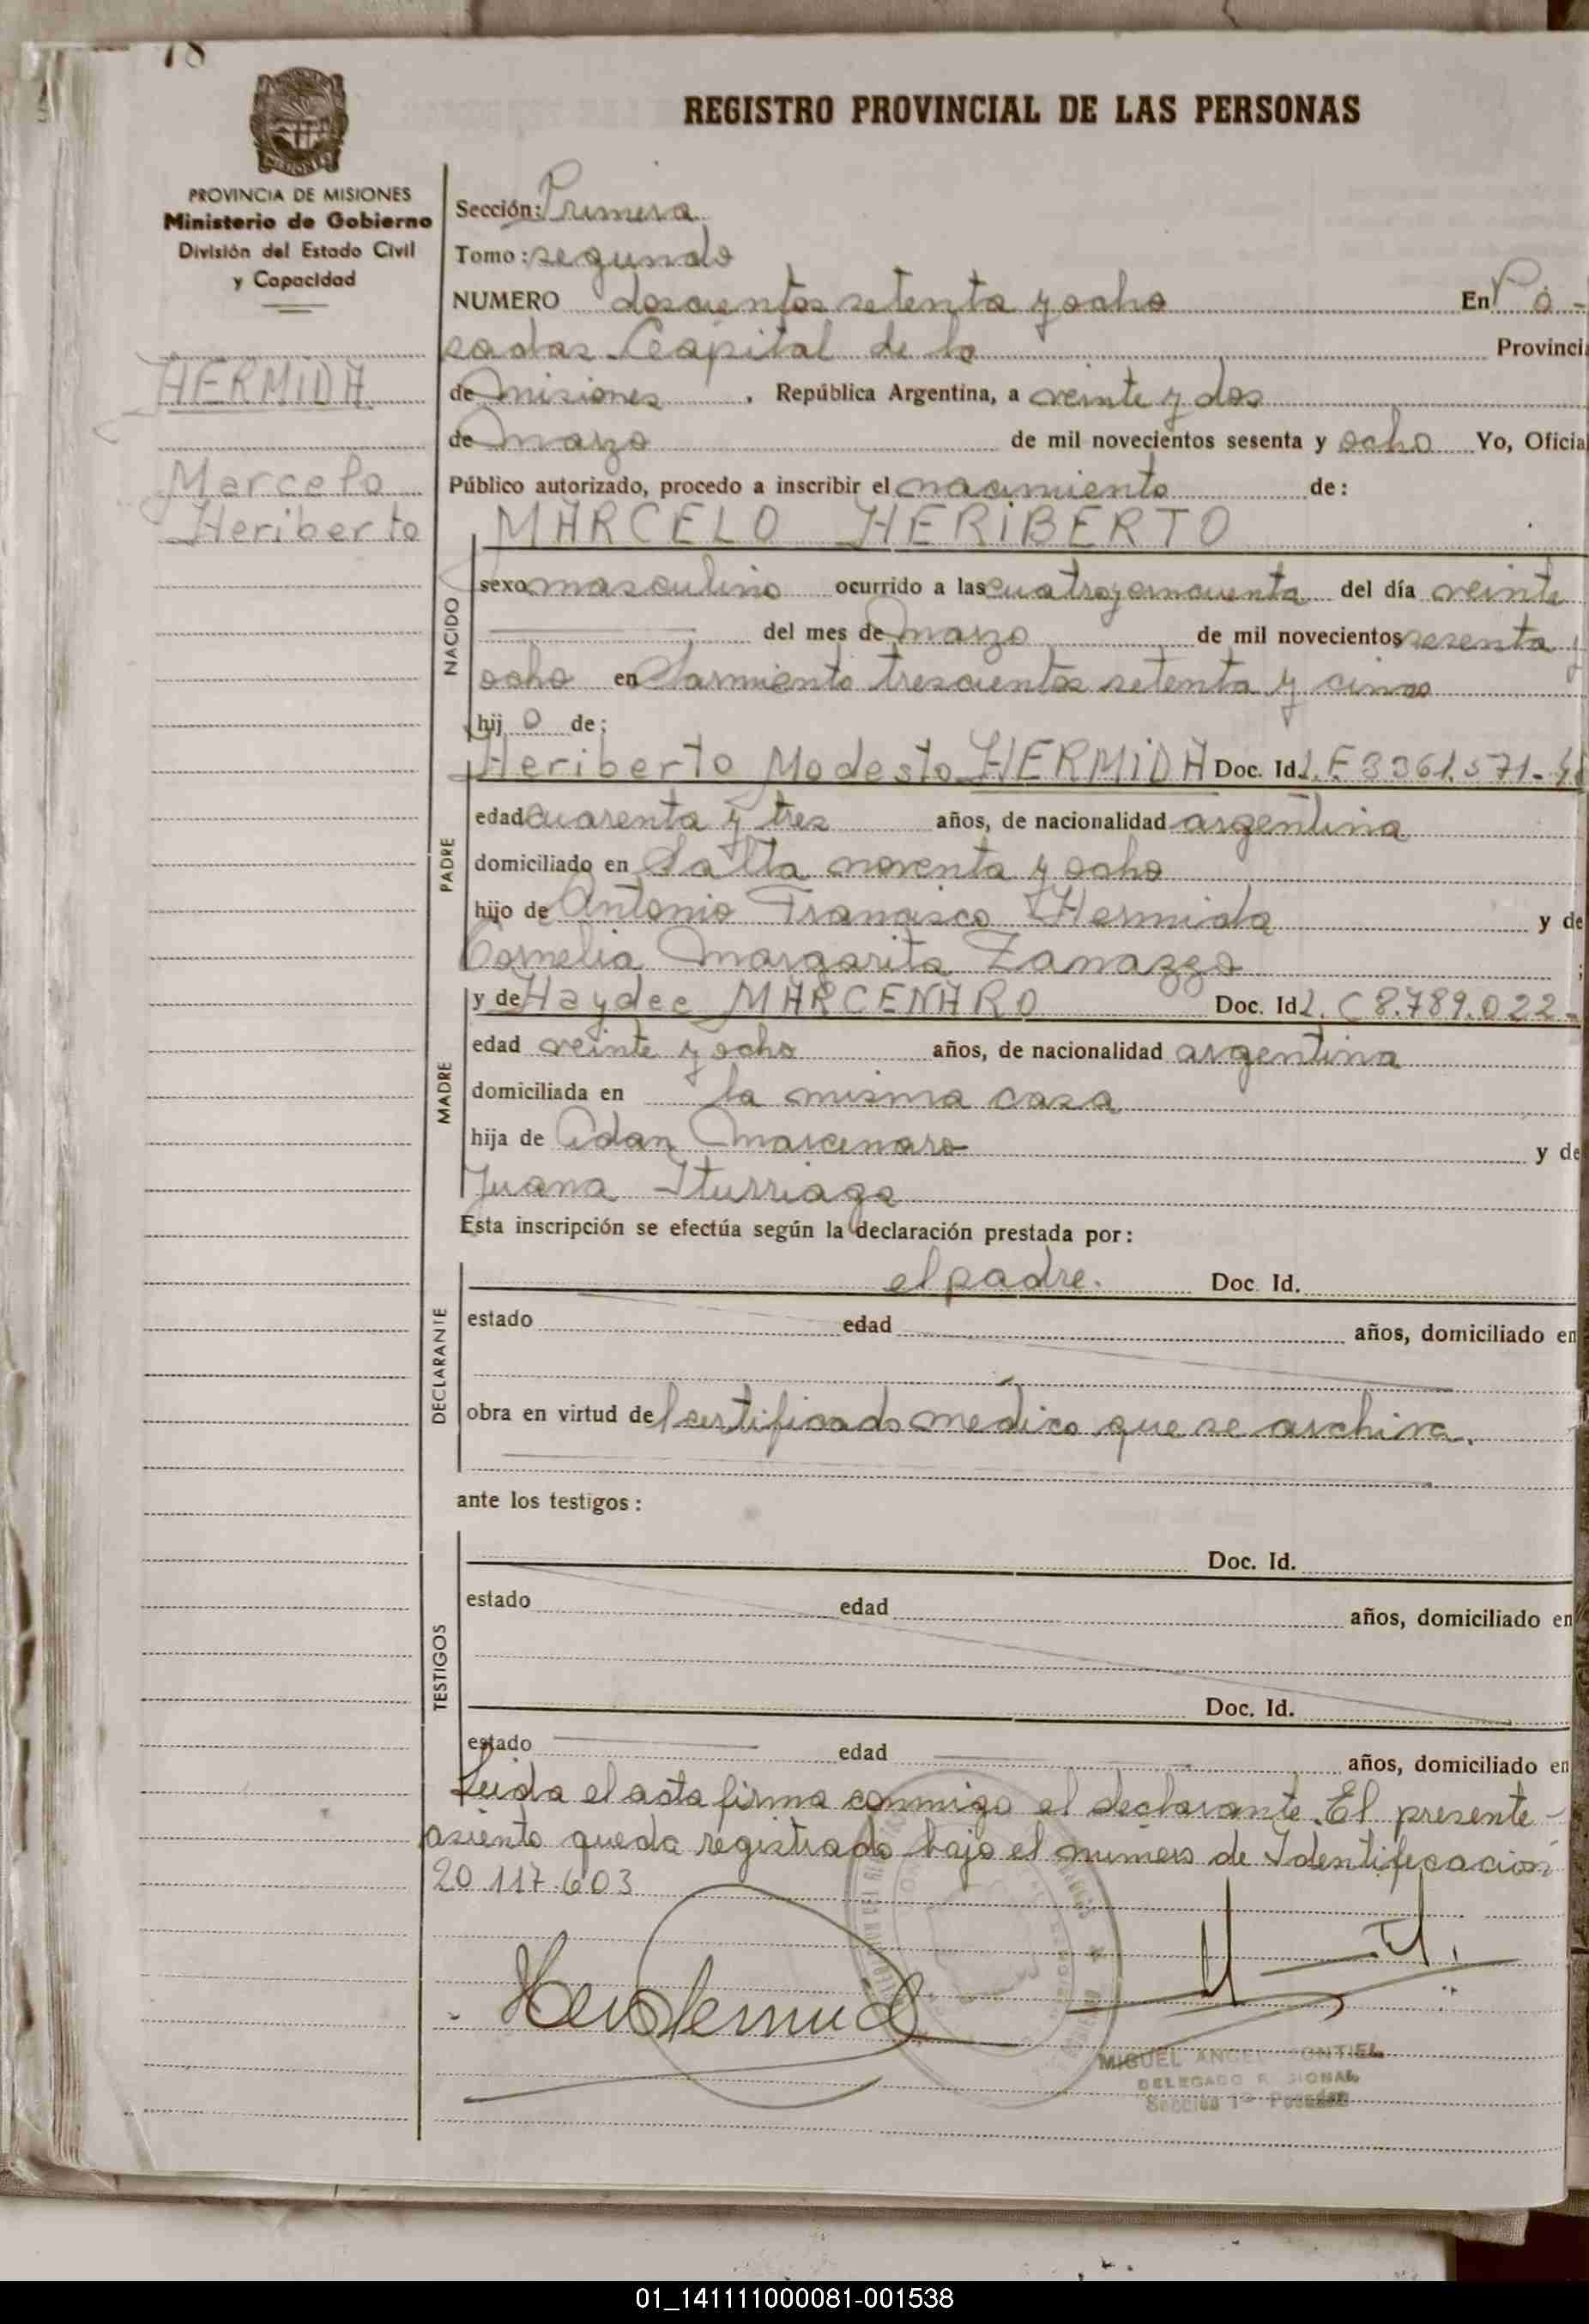 78
REGISTRO PROVINCIAL DE LAS PERSONAS
PROVINCIA DE MISIONES
Ministerio de Gobierno
División del Estado Civil
y Capacidad
HERMIDA
Marcelo
Heriberto
Sección: Primera
Tomo: segundo
NUMERO doscientos setenta y ocho En Po-
sadas Capital de la Provincia
de Misiones, República Argentina, a veinte y dos
de Marzo de mil novecientos sesenta y ocho Yo, Oficial
Público autorizado, procedo a inscribir el nacimiento de:
MARCELO HERIBERTO
NACIDO
sexo masculino ocurrido a las cuatro y cincuenta del día veinte
del mes de Marzo de mil novecientos sesenta y
ocho en Sarmiento trescientos setenta y cinco
hijo de:
PADRE
Heriberto Modesto HERMIDA Doc. Id. L.E 3361.571-
edad cuarenta y tres años, de nacionalidad argentina
domiciliado en Salta noventa y ocho
hijo de Antonio Francisco Hermida y de
Cornelia Margarita Zanazzo
MADRE
y de Haydee MARCENARO Doc. Id L. C 8.789.022-
edad veinte y ocho años, de nacionalidad argentina
domiciliada en la misma casa
hija de Adan Marcenaro y de
Juana Iturriaga
Esta inscripción se efectúa según la declaración prestada por:
DECLARANTE
el padre. Doc. Id.
estado edad años, domiciliado en
obra en virtud del certificado médico que se archiva.
ante los testigos:
TESTIGOS
Doc. Id.
estado edad años, domiciliado en
Doc. Id.
estado edad años, domiciliado en
Leida el acta firma conmigo el declarante. El presente
asiento queda registrado bajo el numero de Identificacion
20.117.603
MIGUEL ANGEL
DELEGADO
Sección 1ª Posadas
01_141111000081-001538